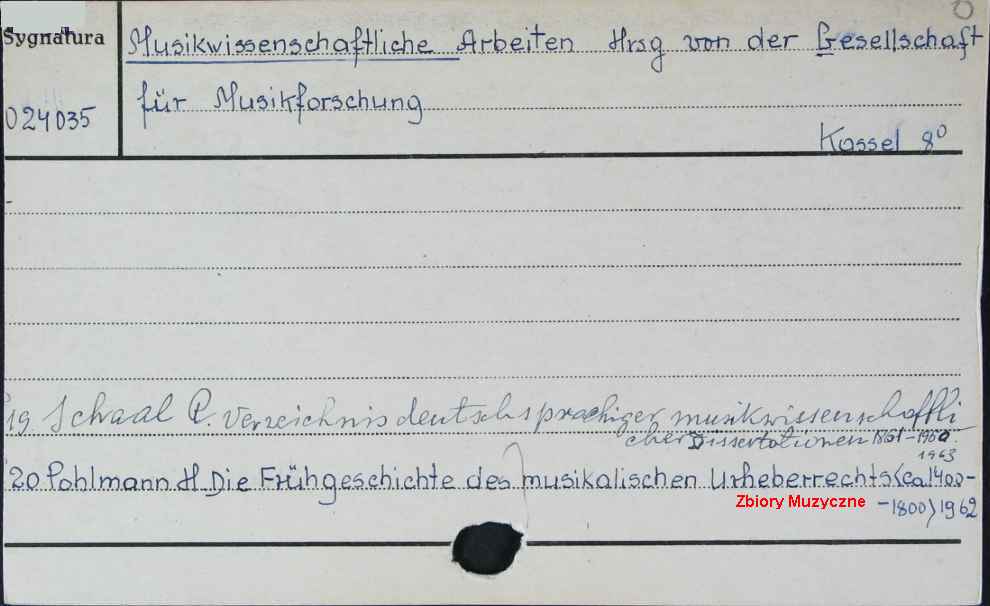 Sygnatura
024035
Musikwissenschaftliche Arbeiten Hrsg von der Gesellschaft
für Musikforschung
Kassel 8°
19 Schaal R. Verzeichnis deutschsprachiger musikwissenschaftli
cher Dissertationen 1861-1960.
1963
20 Pohlmann H Die Frühgeschichte des musikalischen Urheberrechts (ca 1400-
-1800) 1962
Zbiory Muzyczne